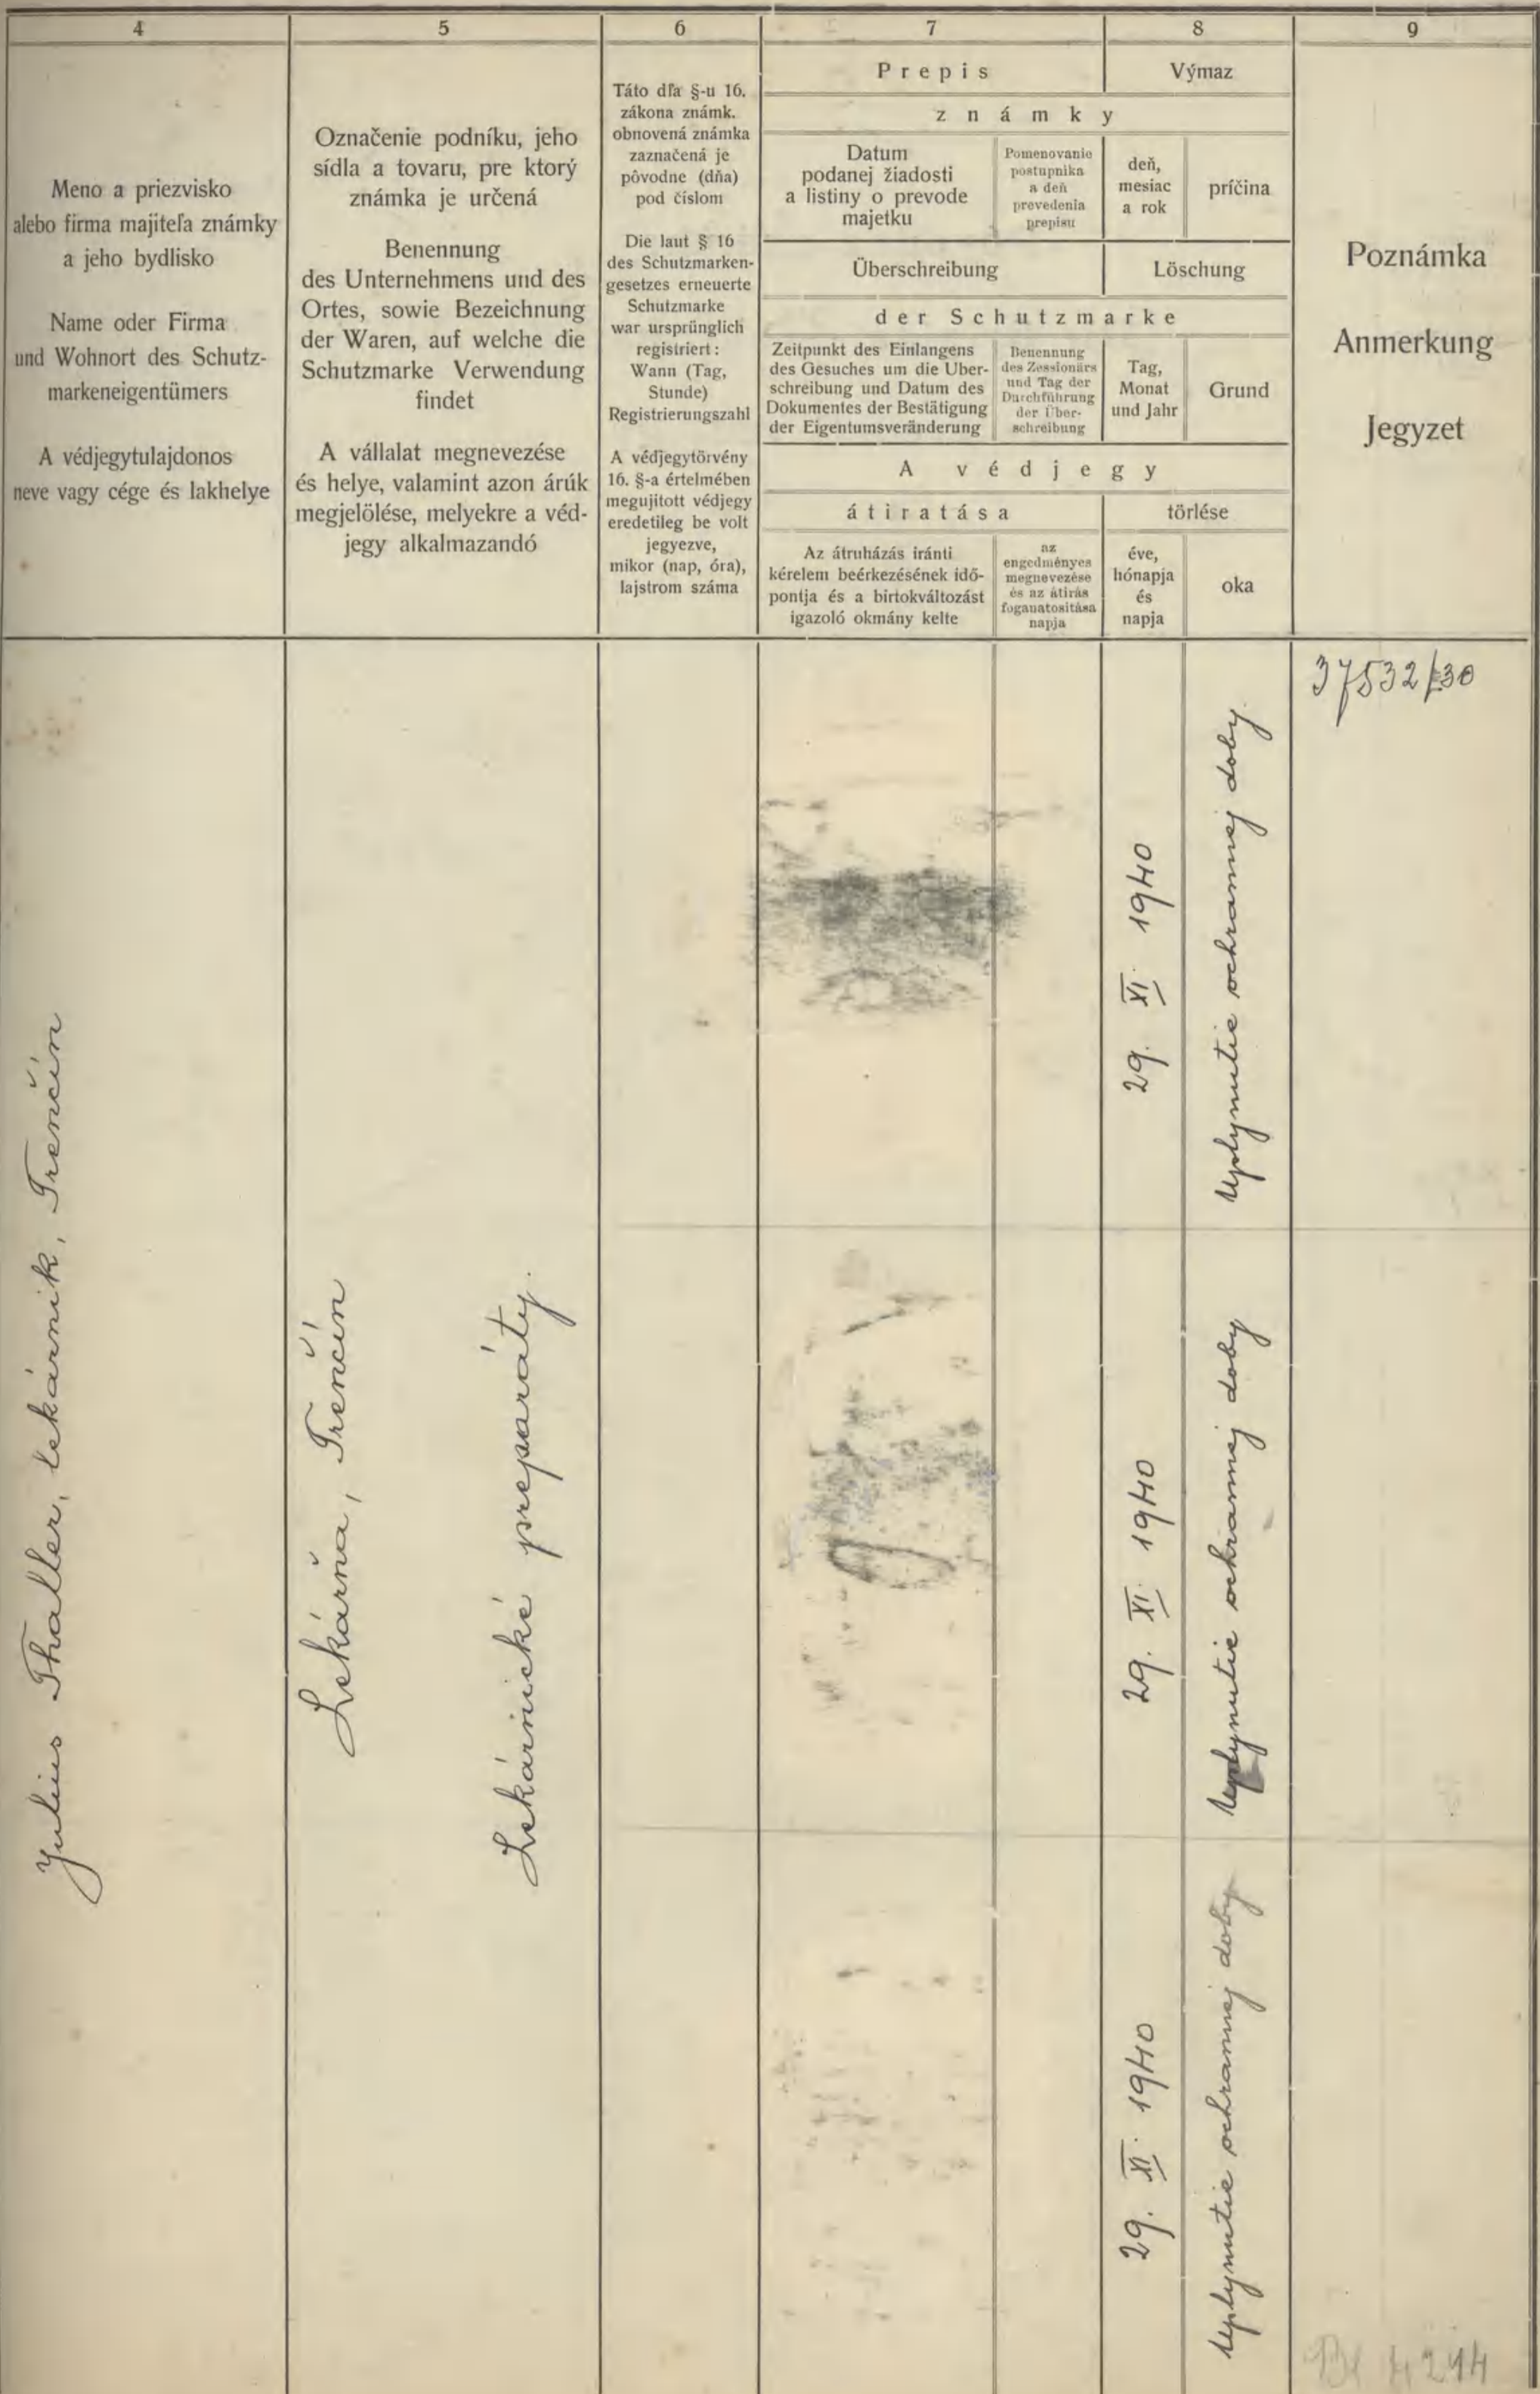 4
5
6
7
8
9
Meno a priezvisko
alebo firma majiteľa známky
a jeho bydlisko
Name oder Firma
und Wohnort des Schutz-
markeneigentümers
A védjegytulajdonos
neve vagy cége és lakhelye
Označenie podníku, jeho
sídla a tovaru, pre ktorý
známka je určená
Benennung
des Unternehmens und des
Ortes, sowie Bezeichnung
der Waren, auf welche die
Schutzmarke Verwendung
findet
A vállalat megnevezése
és helye, valamint azon árúk
megjelölése, melyekre a véd-
jegy alkalmazandó
Táto dľa §-u 16.
zákona známk.
obnovená známka
zaznačená je
pôvodne (dňa)
pod číslom
Die laut § 16
des Schutzmarken-
gesetzes erneuerte
Schutzmarke
war ursprünglich
registriert:
Wann (Tag,
Stunde)
Registrierungszahl
A védjegytörvény
16. §-a értelmében
megujitott védjegy
eredetileg be volt
jegyezve,
mikor (nap, óra),
lajstrom száma
Prepis
Výmaz
známky
Datum
podanej žiadosti
a listiny o prevode
majetku
Pomenovanie
postupnika
a deň
prevedenia
prepisu
deň,
mesiac
a rok
príčina
Überschreibung
Löschung
der Schutzmarke
Zeitpunkt des Einlangens
des Gesuches um die Über-
schreibung und Datum des
Dokumentes der Bestätigung
der Eigentumsveränderung
Benennung
des Zessionärs
und Tag der
Durchführung
der Über-
schreibung
Tag,
Monat
und Jahr
Grund
A védjegy
átiratása
törlése
Az átruházás iránti
kérelem beérkezésének idő-
pontja és a birtokváltozást
igazoló okmány kelte
az
engedményes
megnevezése
és az átirás
foganatositása
napja
éve,
hónapja
és
napja
oka
Poznámka
Anmerkung
Jegyzet
Julius Thaller, lekárnik, Trenčín
Lekárňa, Trenčín
Lekárnické preparáty.
29. XI. 1940
uplynutie ochrannej doby.
37532/30
29. XI. 1940
uplynutie ochrannej doby
29. XI. 1940
uplynutie ochrannej doby